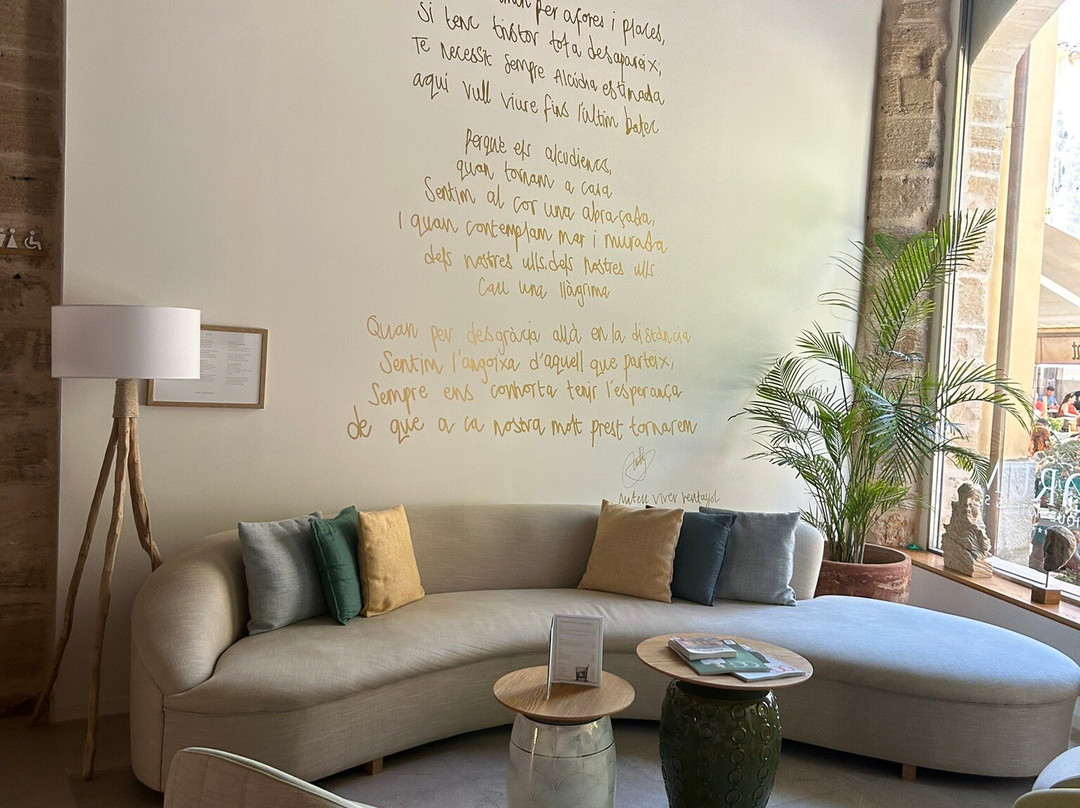 per afores i places,
Si tenc tristor tota desapareix;
Te necessit sempre Alcúdia estimada
aquí vull viure fins l'últim batec
Perquè els alcudiencs,
quan tornam a casa
Sentim al cor una abraçada,
I quan contemplam mar i murada
dels nostres ulls, dels nostres ulls
Cau una llàgrima
Quan per desgràcia allà en la distància
Sentim l'angoixa d'aquell que parteix,
Sempre ens conhorta tenir l'esperança
de que a ca nostra molt prest tornarem
Mateu Viver Bentayol